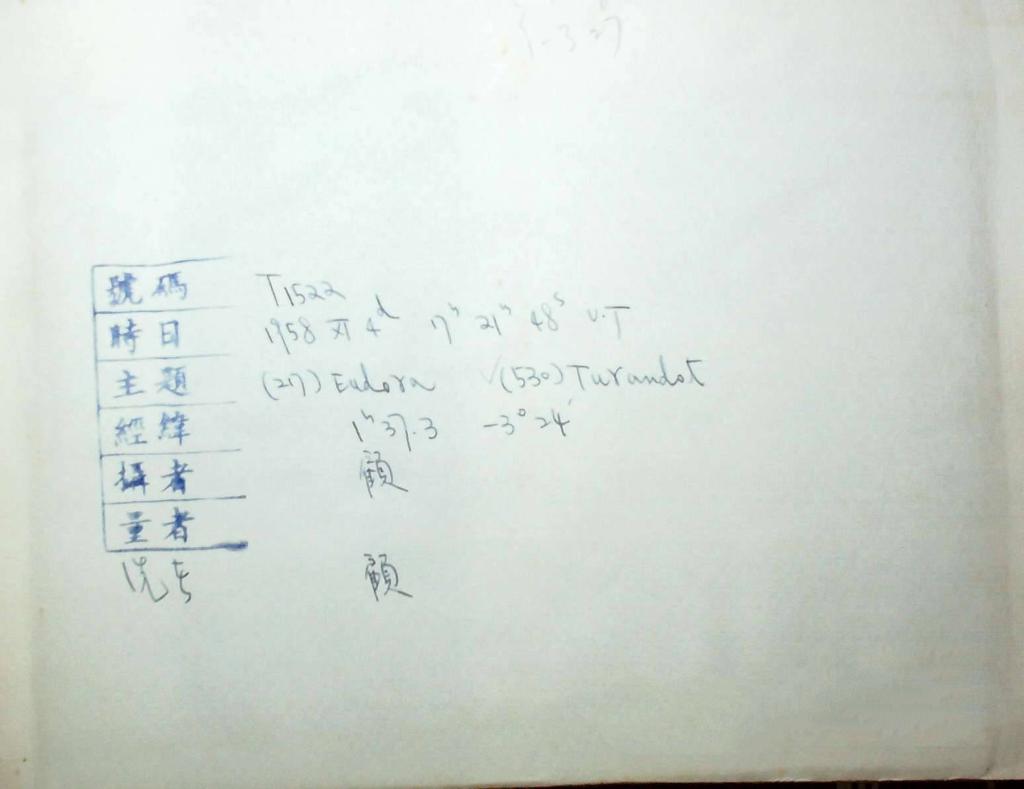 號碼 T1522
時日 1958 XI 4d 17h 21m 48s U.T
主題 (217) Eudora √(530) Turandot
經緯 1h 37.3 -3° 24′
攝者 顧
量者
洗者 顧